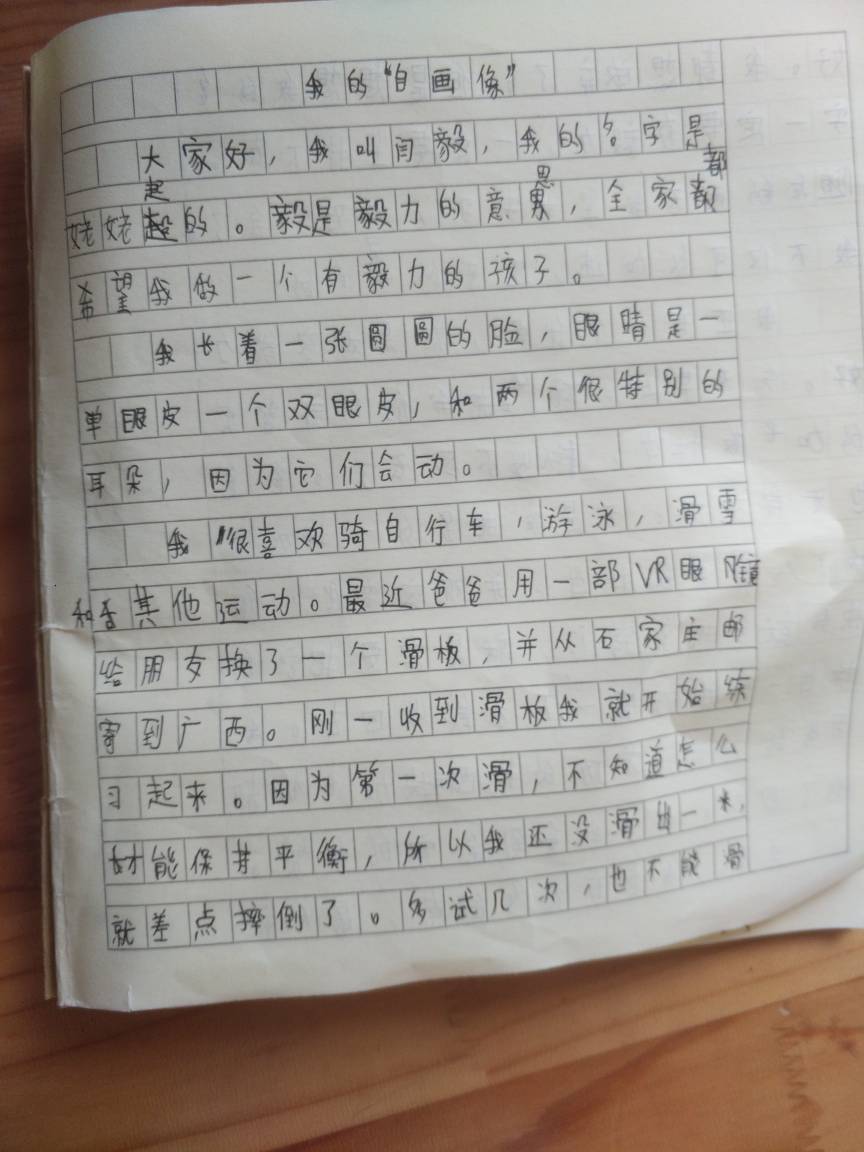 我的“自画像”
大家好，我叫闫毅，我的名字是
姥姥起的。毅是毅力的意思，全家都
希望我做一个有毅力的孩子。
我长着一张圆圆的脸，眼睛是一
单眼皮一个双眼皮，和两个很特别的
耳朵，因为它们会动。
我很喜欢骑自行车，游泳，滑雪
和其他运动。最近爸爸用一部VR眼镜
给朋友换了一个滑板，并从石家庄邮
寄到广西。刚一收到滑板我就开始练
习起来。因为第一次滑，不知道怎么
才能保持平衡，所以我还没滑出一米，
就差点摔倒了。多试几次，也不能滑